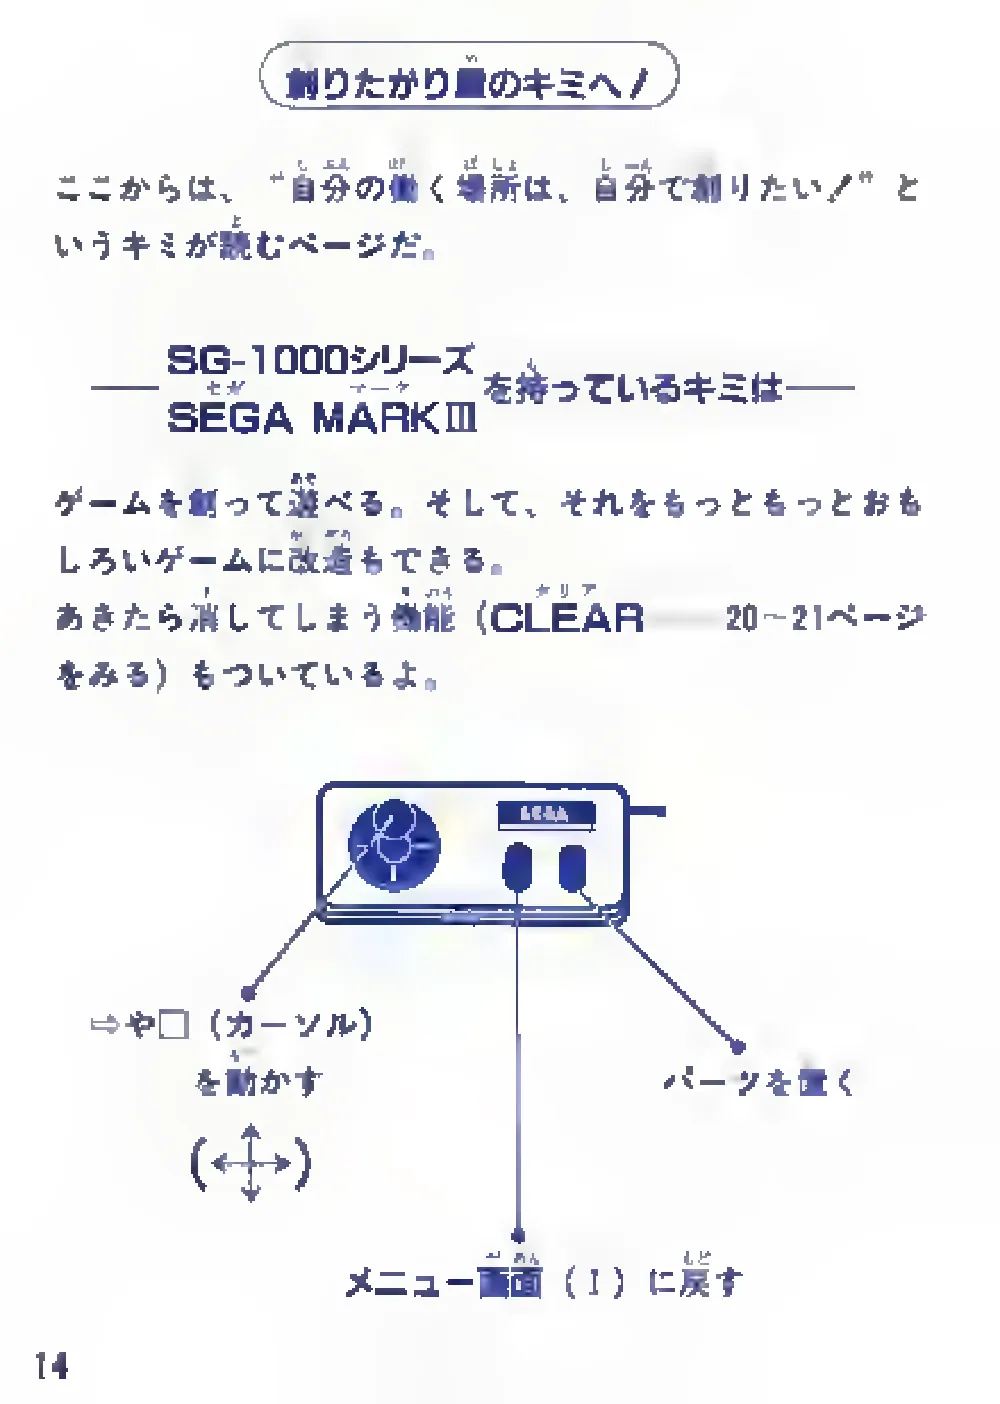 創りたがり屋のキミへ!
ここからは、“自分の働く場所は、自分で創りたい!”と
いうキミが読むページだ。
SG-1000シリーズ
SEGA MARKⅢ
を持っているキミは
ゲームを創って遊べる。そして、それをもっともっとおも
しろいゲームに改造もできる。
あきたら消してしまう機能(CLEAR——20~21ページ
をみる)もついているよ。
SEGA
⇨や□(カーソル)
を動かす
パーツを置く
メニュー画面(Ⅰ)に戻す
14